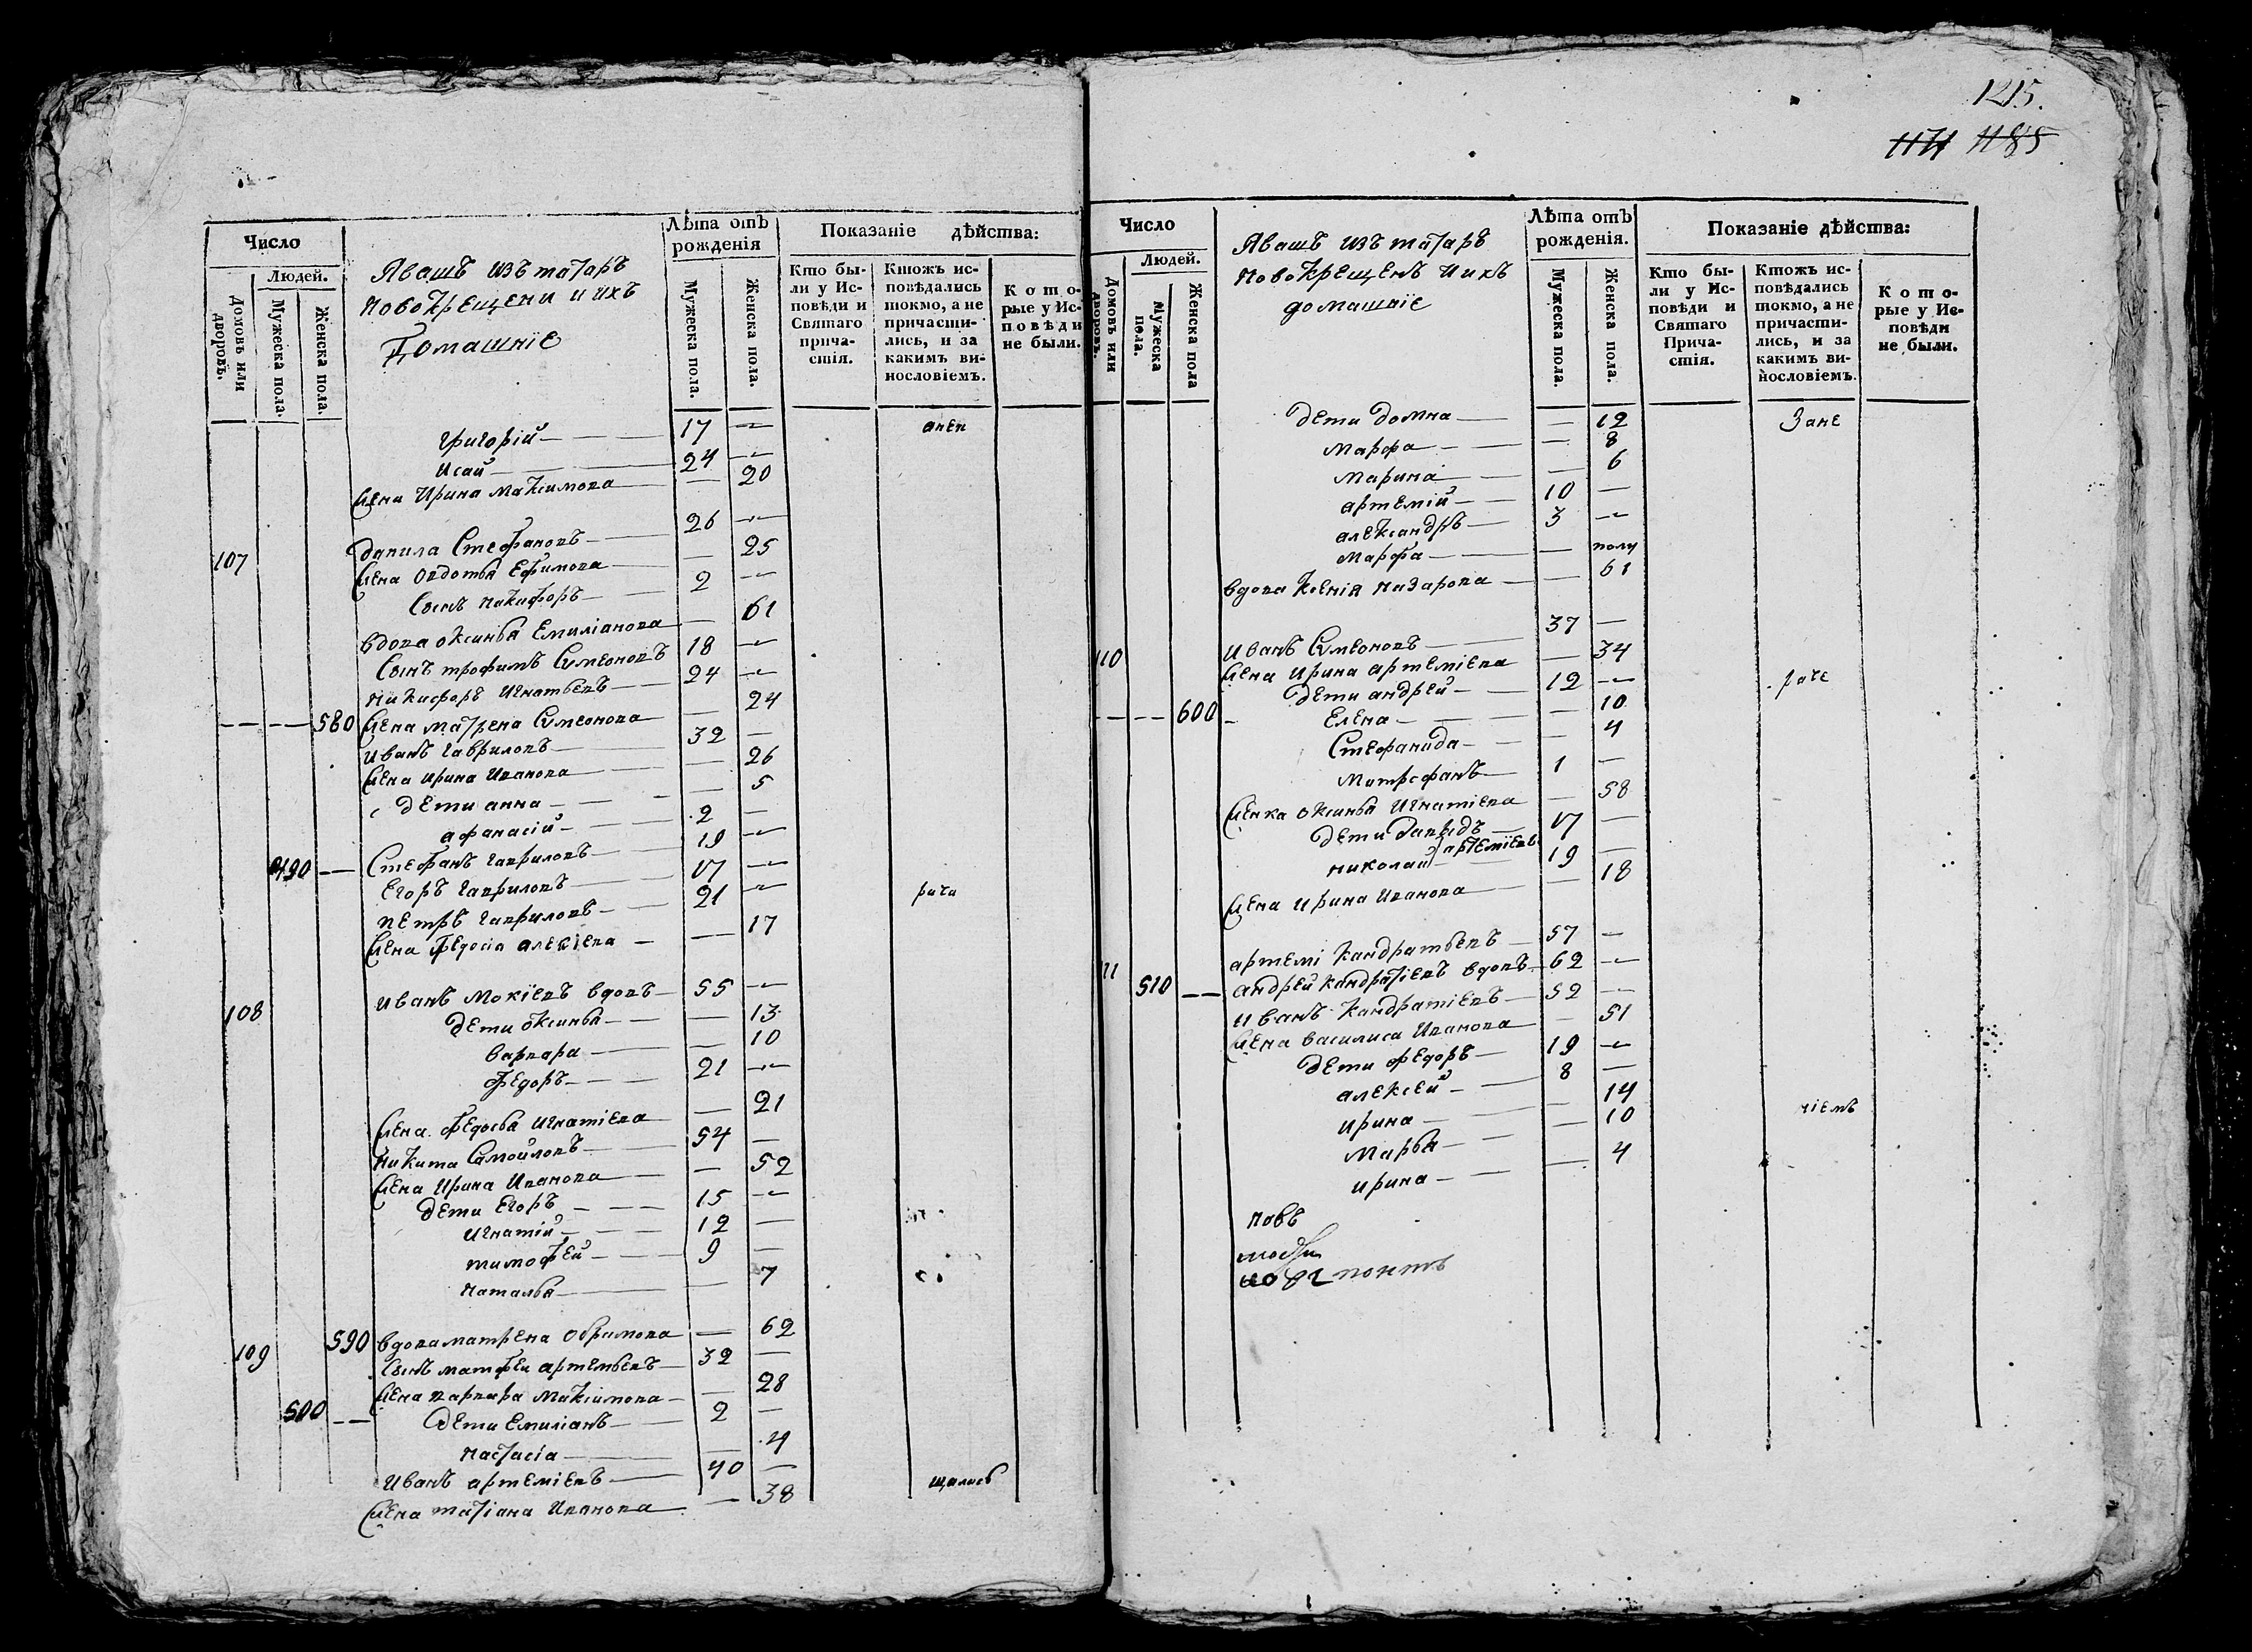 1215.
1171 1185
Число
Людей.
Домовъ или дворовъ.
Мужеска пола.
Женска пола.
Явашъ изъ татаръ
новокрещени и ихъ
Домашніе
Лѣта отъ рожденія
Мужеска пола.
Женска пола.
Показаніе дѣйства:
Кто были у Исповѣди и Святаго причастія.
Ктожъ исповѣдались токмо, а не причастились, и за какимъ винословіемъ.
Которые у Исповѣди не были.
григорій 17
исаи 24
жена Ирина Максимова 20
107 данила Стефановъ 26
жена овдотья Ефимова 25
сынъ никифоръ 2
вдова оксинья Емиліанова 61
сынъ трофимъ Симеоновъ 18
никифоръ Игнатьевъ 24
580 жена матрена Симеонова 24
иванъ гавриловъ 32
жена ирина Иванова 26
дети анна 5
афанасіи 2
490 Стефанъ гавриловъ 19
Егоръ гавриловъ 17
петръ гавриловъ 21 рати
жена федосіа алексіева 17
108 иванъ мокіевъ вдовъ 55
дети оксинья 13
варвара 10
федоръ 21
жена федосья игнатіева 21
никита Самойловъ 54
жена Ирина Иванова 52
дети Егоръ 15
игнатій 12
тимофей 9
наталья 7
109 590 вдова матрена 62
сынъ матфеи артемьевъ 32
жена варвара Максимова 28
500 дети Емиліанъ 2
настасіа 4
иванъ артеміевъ 40
жена татіана Иванова 38 щались
Число
Людей.
Домовъ или дворовъ.
Мужеска пола.
Женска пола
Явашъ изъ татаръ
новокрещенъ и ихъ
домашніе
Лѣта отъ рожденія.
Мужеска пола.
Женска пола.
Показаніе дѣйства:
Кто были у Исповѣди и Святаго Причастія.
Ктожъ исповѣдались токмо, а не причастились, и за какимъ винословіемъ.
Которые у Исповѣди не были.
дети домна 12 Зане
марфа 8
марина 6
артемій 10
александръ 3
марфа полу
вдова Ксенія назарова 61
110 иванъ Симеоновъ 37
жена ирина артеміева 34
дети андрей 12
600 Елена 10
Стефанида 4
Митрофанъ 1
женка оксинья Игнатіева 58
дети давыдъ 17
николай артеміевъ 19
жена ирина Иванова 18
артемі кандратьевъ 57
11 510 андрей кандратіевъ вдовъ 62
иванъ кандратіевъ 52
жена василиса Иванова 51
дети федоръ 19
алексей 8
ирина 14
марья 10
ирина 4